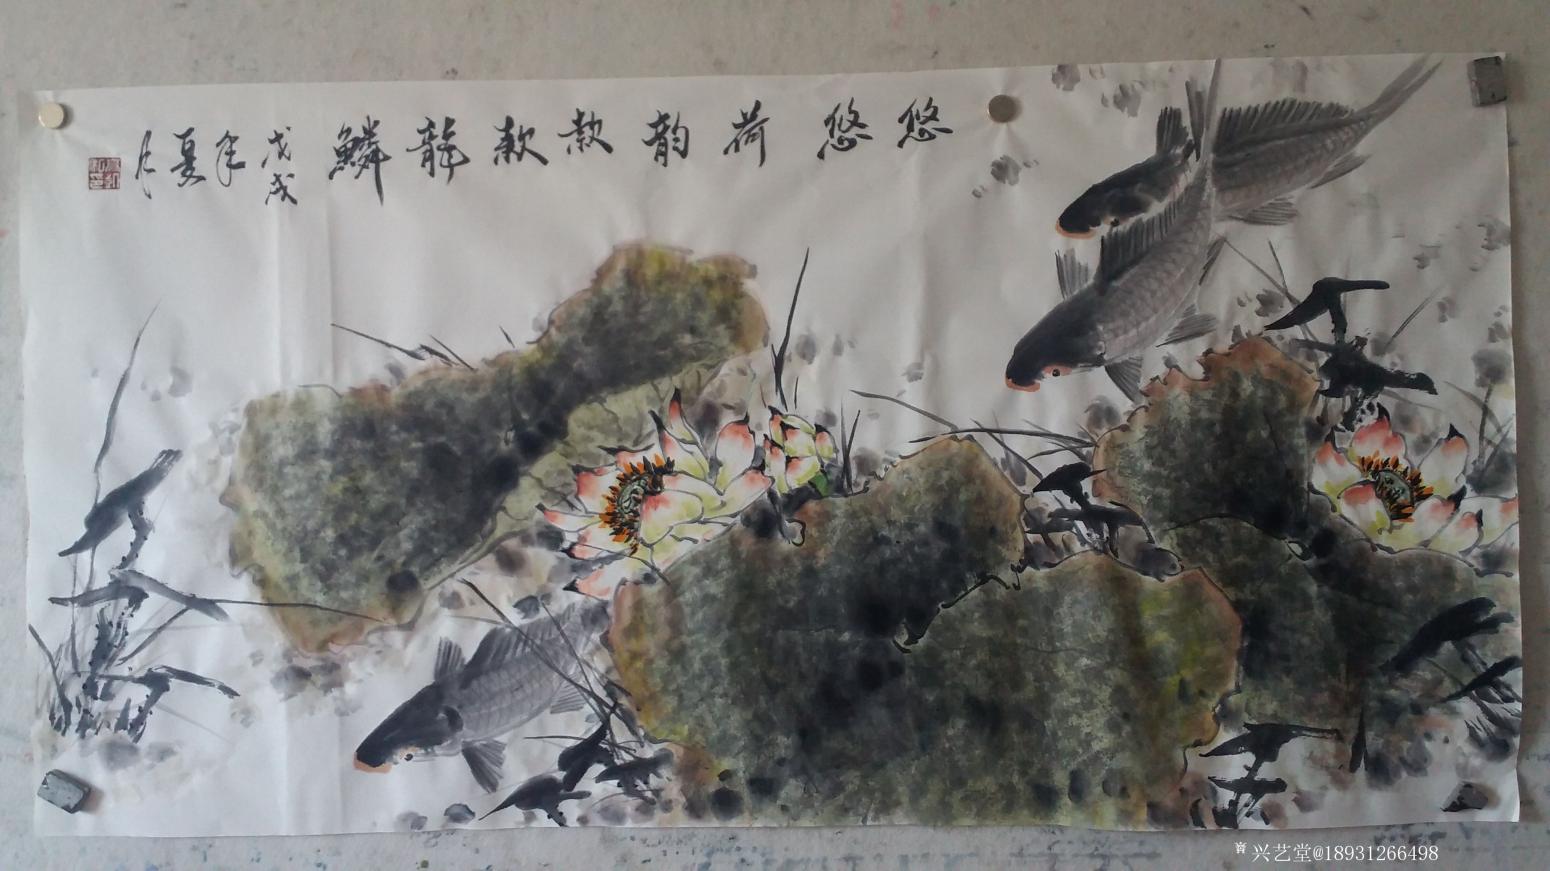 悠悠荷韵款款龍鳞
戊戌年夏月
兴艺堂@18931266498